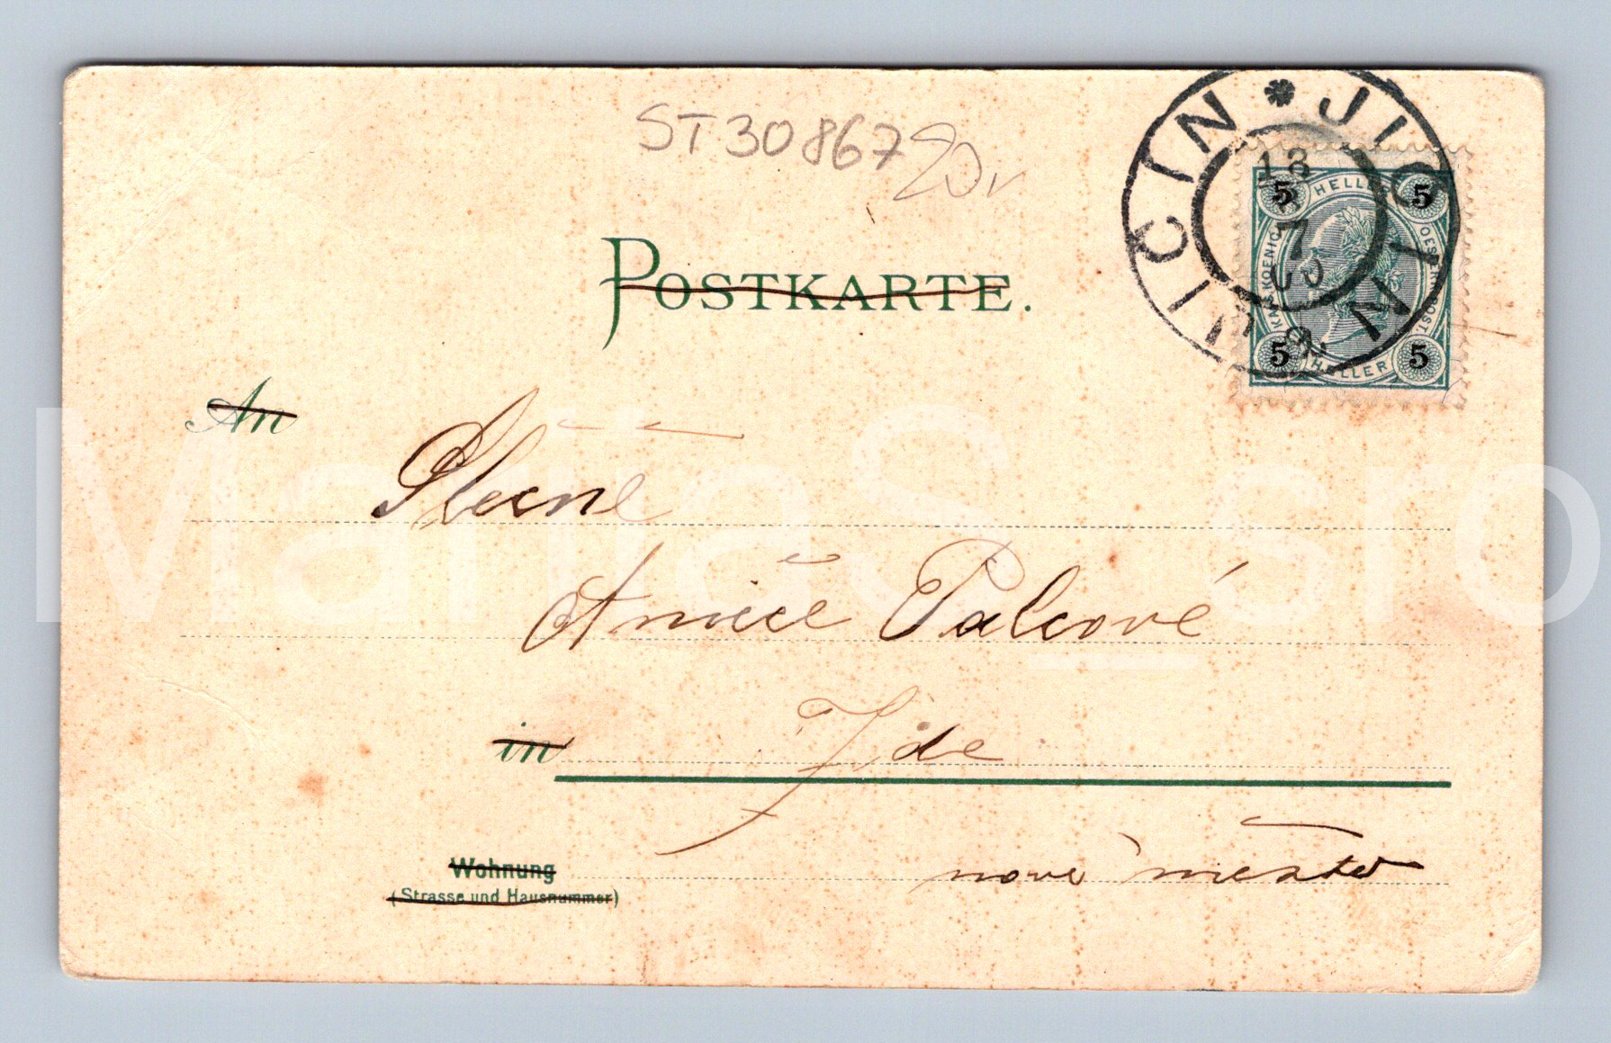 ST 30867 20,-
POSTKARTE.
JIČÍN * JIČIN
13
7
00
5 HELLER 5
KAIS. KOENIGL. OESTERR. POST.
5 HELLER 5
An
Slečně
Anničce Palcové
in
Zde
Wohnung
(Strasse und Hausnummer)
nové město
MarijaS_sro